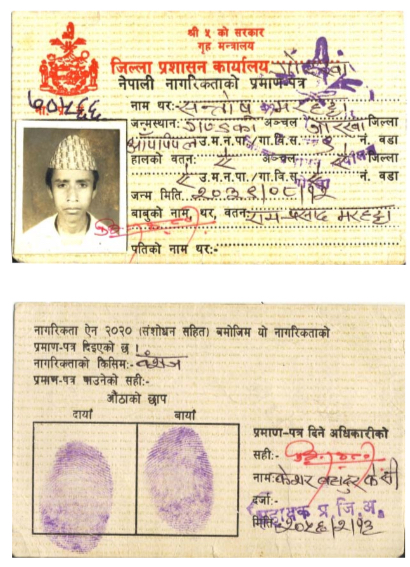 श्री ५ को सरकार
गृह मन्त्रालय
जिल्ला प्रशासन कार्यालय गोरखा
नेपाली नागरिकताको प्रमाण-पत्र
नाम थर:- सन्तोष मरहठ्ठा
जन्मस्थान: गण्डकी अञ्चल गोरखा जिल्ला
उ.म.न.पा./गा.वि.स. नं. वडा
हालको वतन: ऐ अञ्चल जिल्ला
ऐ उ.म.न.पा./गा.वि.स. नं. वडा
जन्म मिति
बाबुको नाम, थर, वतन: राम प्रसाद मरहठ्ठा
पतिको नाम थर:-
नागरिकता ऐन २०२० (संशोधन सहित) बमोजिम यो नागरिकताको
प्रमाण-पत्र दिइएको छ ।
नागरिकताको किसिम:- वंशज
प्रमाण-पत्र पाउनेको सही:-
औंठाको छाप
दायाँ बायाँ
प्रमाण-पत्र दिने अधिकारीको
सही:-
नाम: केशर बहादुर के सी
दर्जा:- सहायक प्र. जि. अ.
मिति: २०५६/२/१३